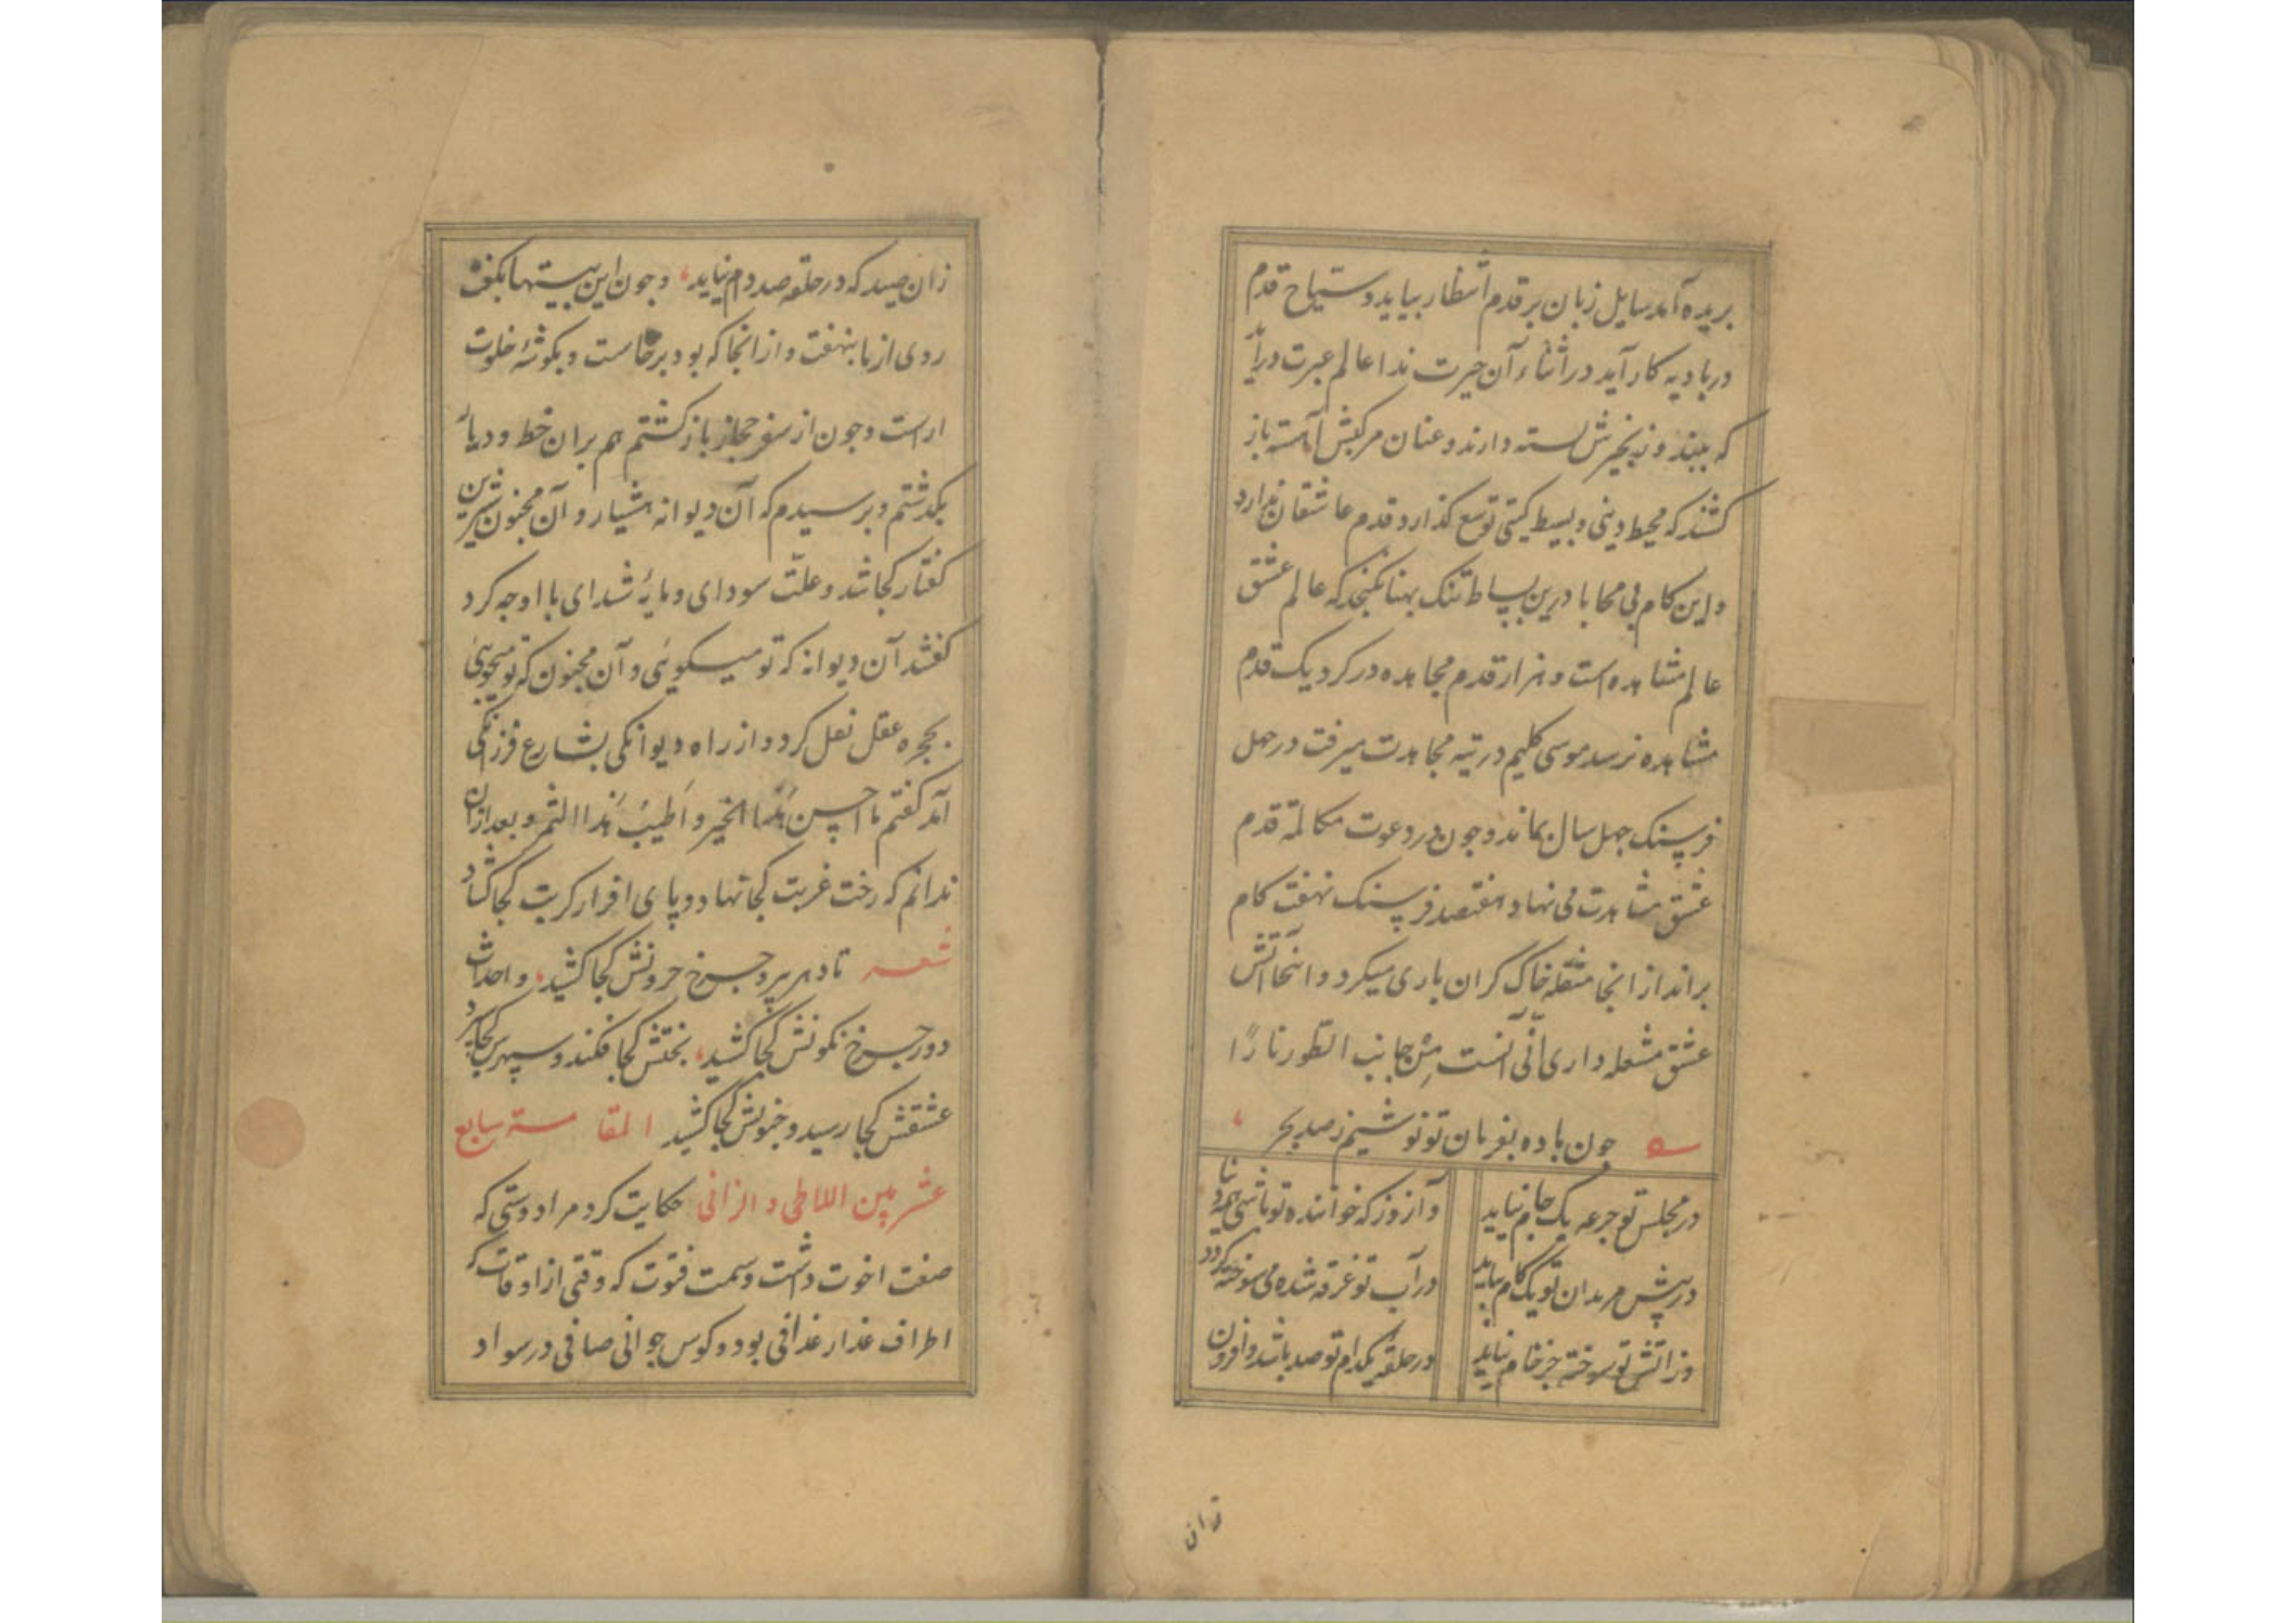 بریده آمد سایل زبان بر قدم انتظار بیاید و سیاح قدم
در بادیه کار آید در اثناء آن حیرت ندا عالم عبرت درآید
که ببیند و زنجیرش بسته دارند و عنان مرکبش آهسته باز
کشند که محیط دینی و بسیط کیتی توسع کذار و قدم عاشقان ندارد
و این کام بی محابا درین بساط تنک بهنا نکنجد که عالم عشق
عالم مشاهده است و هزار قدم مجاهده در کرد یک قدم
مشاهده نرسد موسی کلیم در تیه مجاهدت میرفت در جهل
فرسنک جهل سال بماند و جون در دعوت مکالمة قدم
عشق مشاهدت می نهاد هفتصد فرسنک نهفت کام
براند از انجا مثقلة خاک کران باری میکرد و اینجا آتش
عشق مشعله داری انّی آنست من جانب الطور نارًا
جون باده بفرمان تو نوشیم ز صد بحر
در مجلس تو جرعه یک جام نیاید و آنروز که خواننده تو باشی همه دنیا
در پیش مریدان تو یک کام نیاید در آب تو غرقه شده می سوخته کردد
وز آتش تو سوخته جز خام نیاید در حلقه یکدام تو صد باشد و افزون
زان
زان صید که در حلقه صد دام نیاید و جون این بیتها بکفت
روی از ما بنهفت و از انجا که بود برخاست و بکوشهٔ خلوت
اراست و جون از سفر حجاز باز کشتم هم بران خط و دیار
بکذشتم و برسیدم که آن دیوانه هشیار و آن مجنون شیرین
کفتار کجا شد و علّت سودای و مایهٔ شدای با او جه کرد
کفتند آن دیوانه که تو میکوئی و آن مجنون که تو میجوئی
بحجره عقل نقل کرد و از راه دیوانکی بشارع فرزانکی
آمد کفتم ما احسن هذا الخیر و اطیب هذا الثمر و بعد ازان
ندانم که رخت غربت کجا نهاد و پای افزار کربت کجا کشاد
شعر تا دهر پیر و جرخ حرونش کجا کشید و احداث
دور جرخ نکونش کجا کشید بختش کجا فکند و سپهرش کجا برد
عشقش کجا رسید و جنونش کجا کشید المقامة سابع
عشر بین اللاطی و الزانی حکایت کرد مرا دوستی که
صفت اخوت داشت و سمت فتوت که وقتی از اوقات که
اطراف عذار غدافی بود و کوس جوانی صافی در سواد